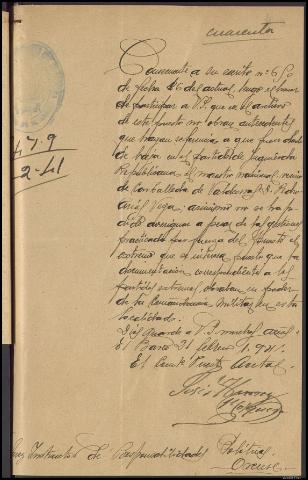 cuarenta
Consecuente a su escrito nº 650
de fecha 16 del actual, tengo el honor
de participar a V.S. que en el archivo
de este puesto no obran antecedentes
que hagan referencia a que fuera dado
de baja en el partido de Izquierda
Republicana el maestro nacional, vecino
de Carballeda de Valdeorras D. Pedro
Arias Vega; asimismo no se ha po-
dido averiguar a pesar de las gestiones
practicadas por fuerza del Puesto el
extremo que se interesa puesto que la
documentación correspondiente a los
partidos extremos, obraban en poder
de la Comandancia Militar en esta
localidad.
Dios guarde a V.S. muchos años.
El Barco 21 febrero 1.941.
El Comte Puesto Acctal.
Jesús
Juez Instructor de Responsabilidades Políticas
Orense
47.9
2-41